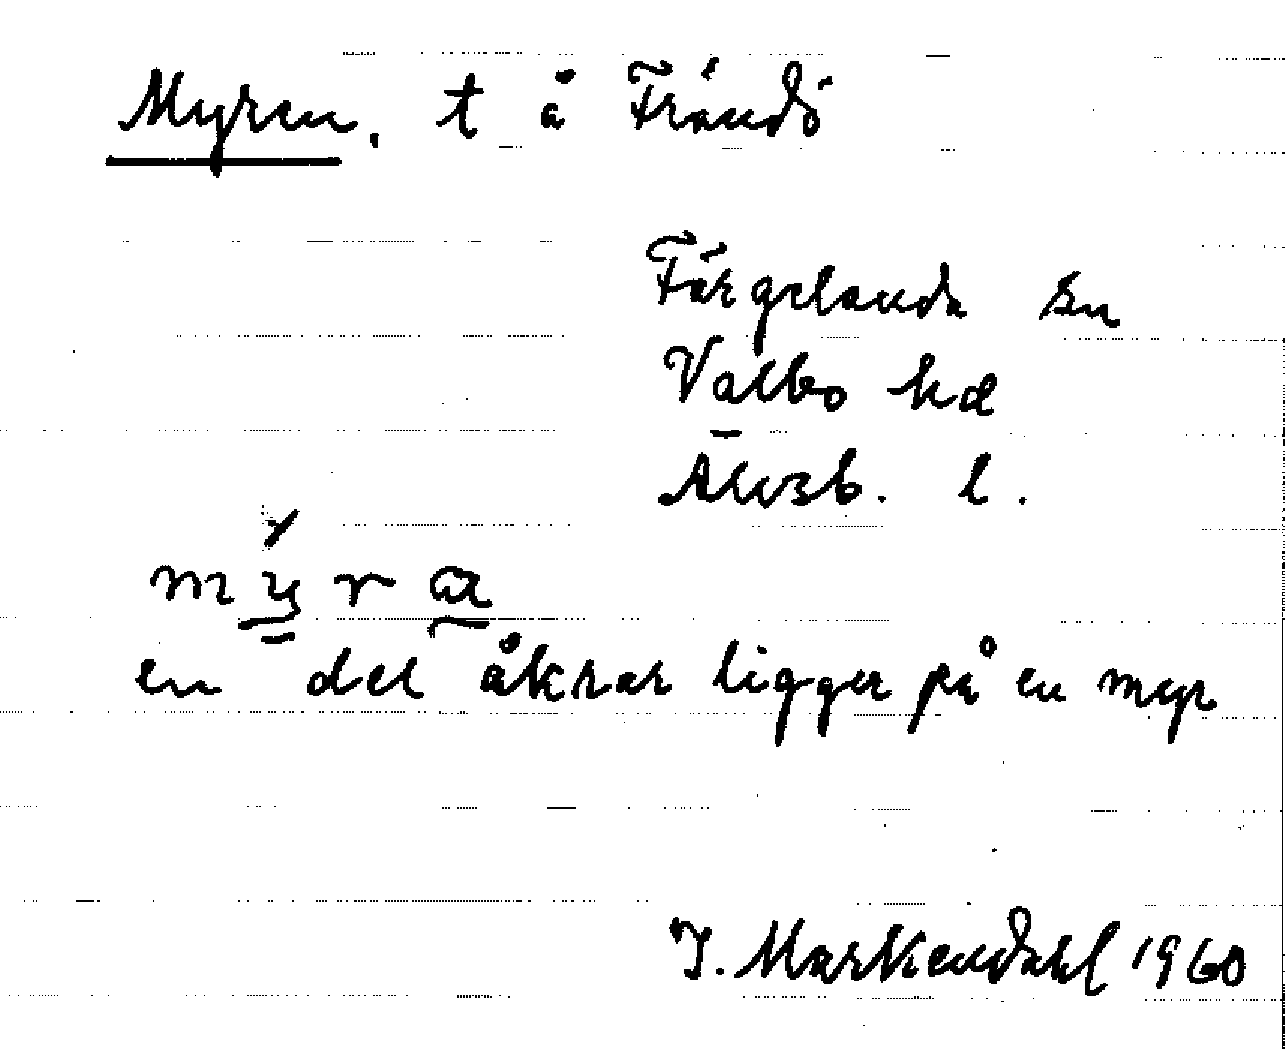 Myren, t å Frändö
Färgelanda sn
Valbo hd
Älvsb. l.
mýra
en del åkrar ligger på en myr
J. Markendahl 1960